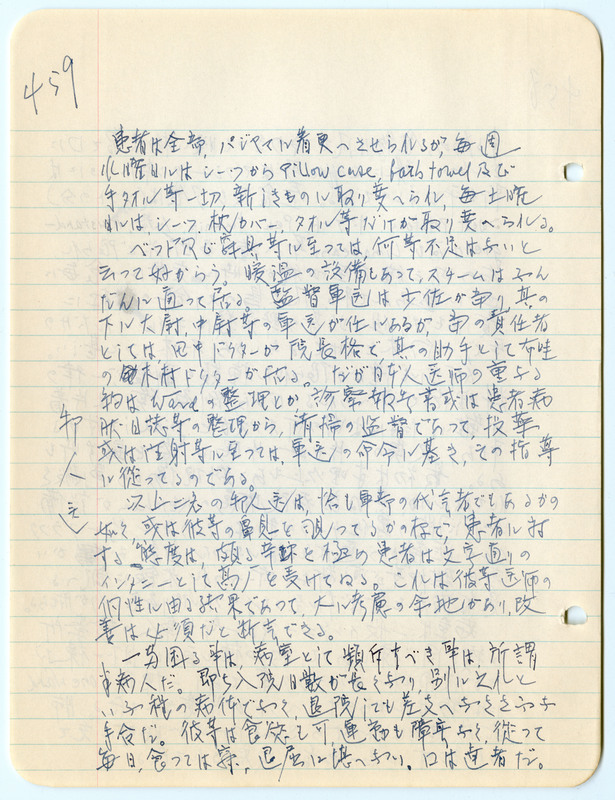 459
患者は全部、パジヤマに着更へさせられるが、毎週
水曜日にはシーツから pillow case, bath towel 及び
手タオル等一切、新しきものに取り變へられ、毎土曜
日にはシーツ、枕カバー、タオル等だけが取り變へられる。
ベッド及び寝具等に至つては、何等不足はないと
云つて好からう。暖温の設備もあつて、スチームはふん
だんに通つて居る。監督軍医は少佐が当り、其の
下に大尉、中尉等の軍医が仕にあるが、当の責任者
としては、田中ドクターが院長格で、其の助手として
の木村ドクターが居る。だが日本人医師の重なる
物は ward の整理とか、診察報告書或は患者病
状日誌等の整理から、清掃の監督であつて、投薬
或は注射等に至つては、軍医の命令に基き、その指導
に従つてるのである。
以上二名の邦人医は、恰も軍部の代言者でもあるかの
如く、或は彼等の鼻息を覗つてるかの様で、患者に対
する態度は、頗る辛辣を極め患者は文字通りの
インタニーとして高圧を受けてゐる。これは彼等医師の
個性に由る結果であつて、大に考慮の余地があり、改
善は必須だと断言できる。
邦人医
一番困る事は、病室として頻斥すべき事は、所謂
病人だ。即ち入院日数が長くなり、別にこれと
いふ程の病体でなく、退院しても差支へなささうな
手合だ。彼等は食慾も可、運動も障碍なく、従つて
毎日、食つては寐、退屈に堪へない。口は達者だ。